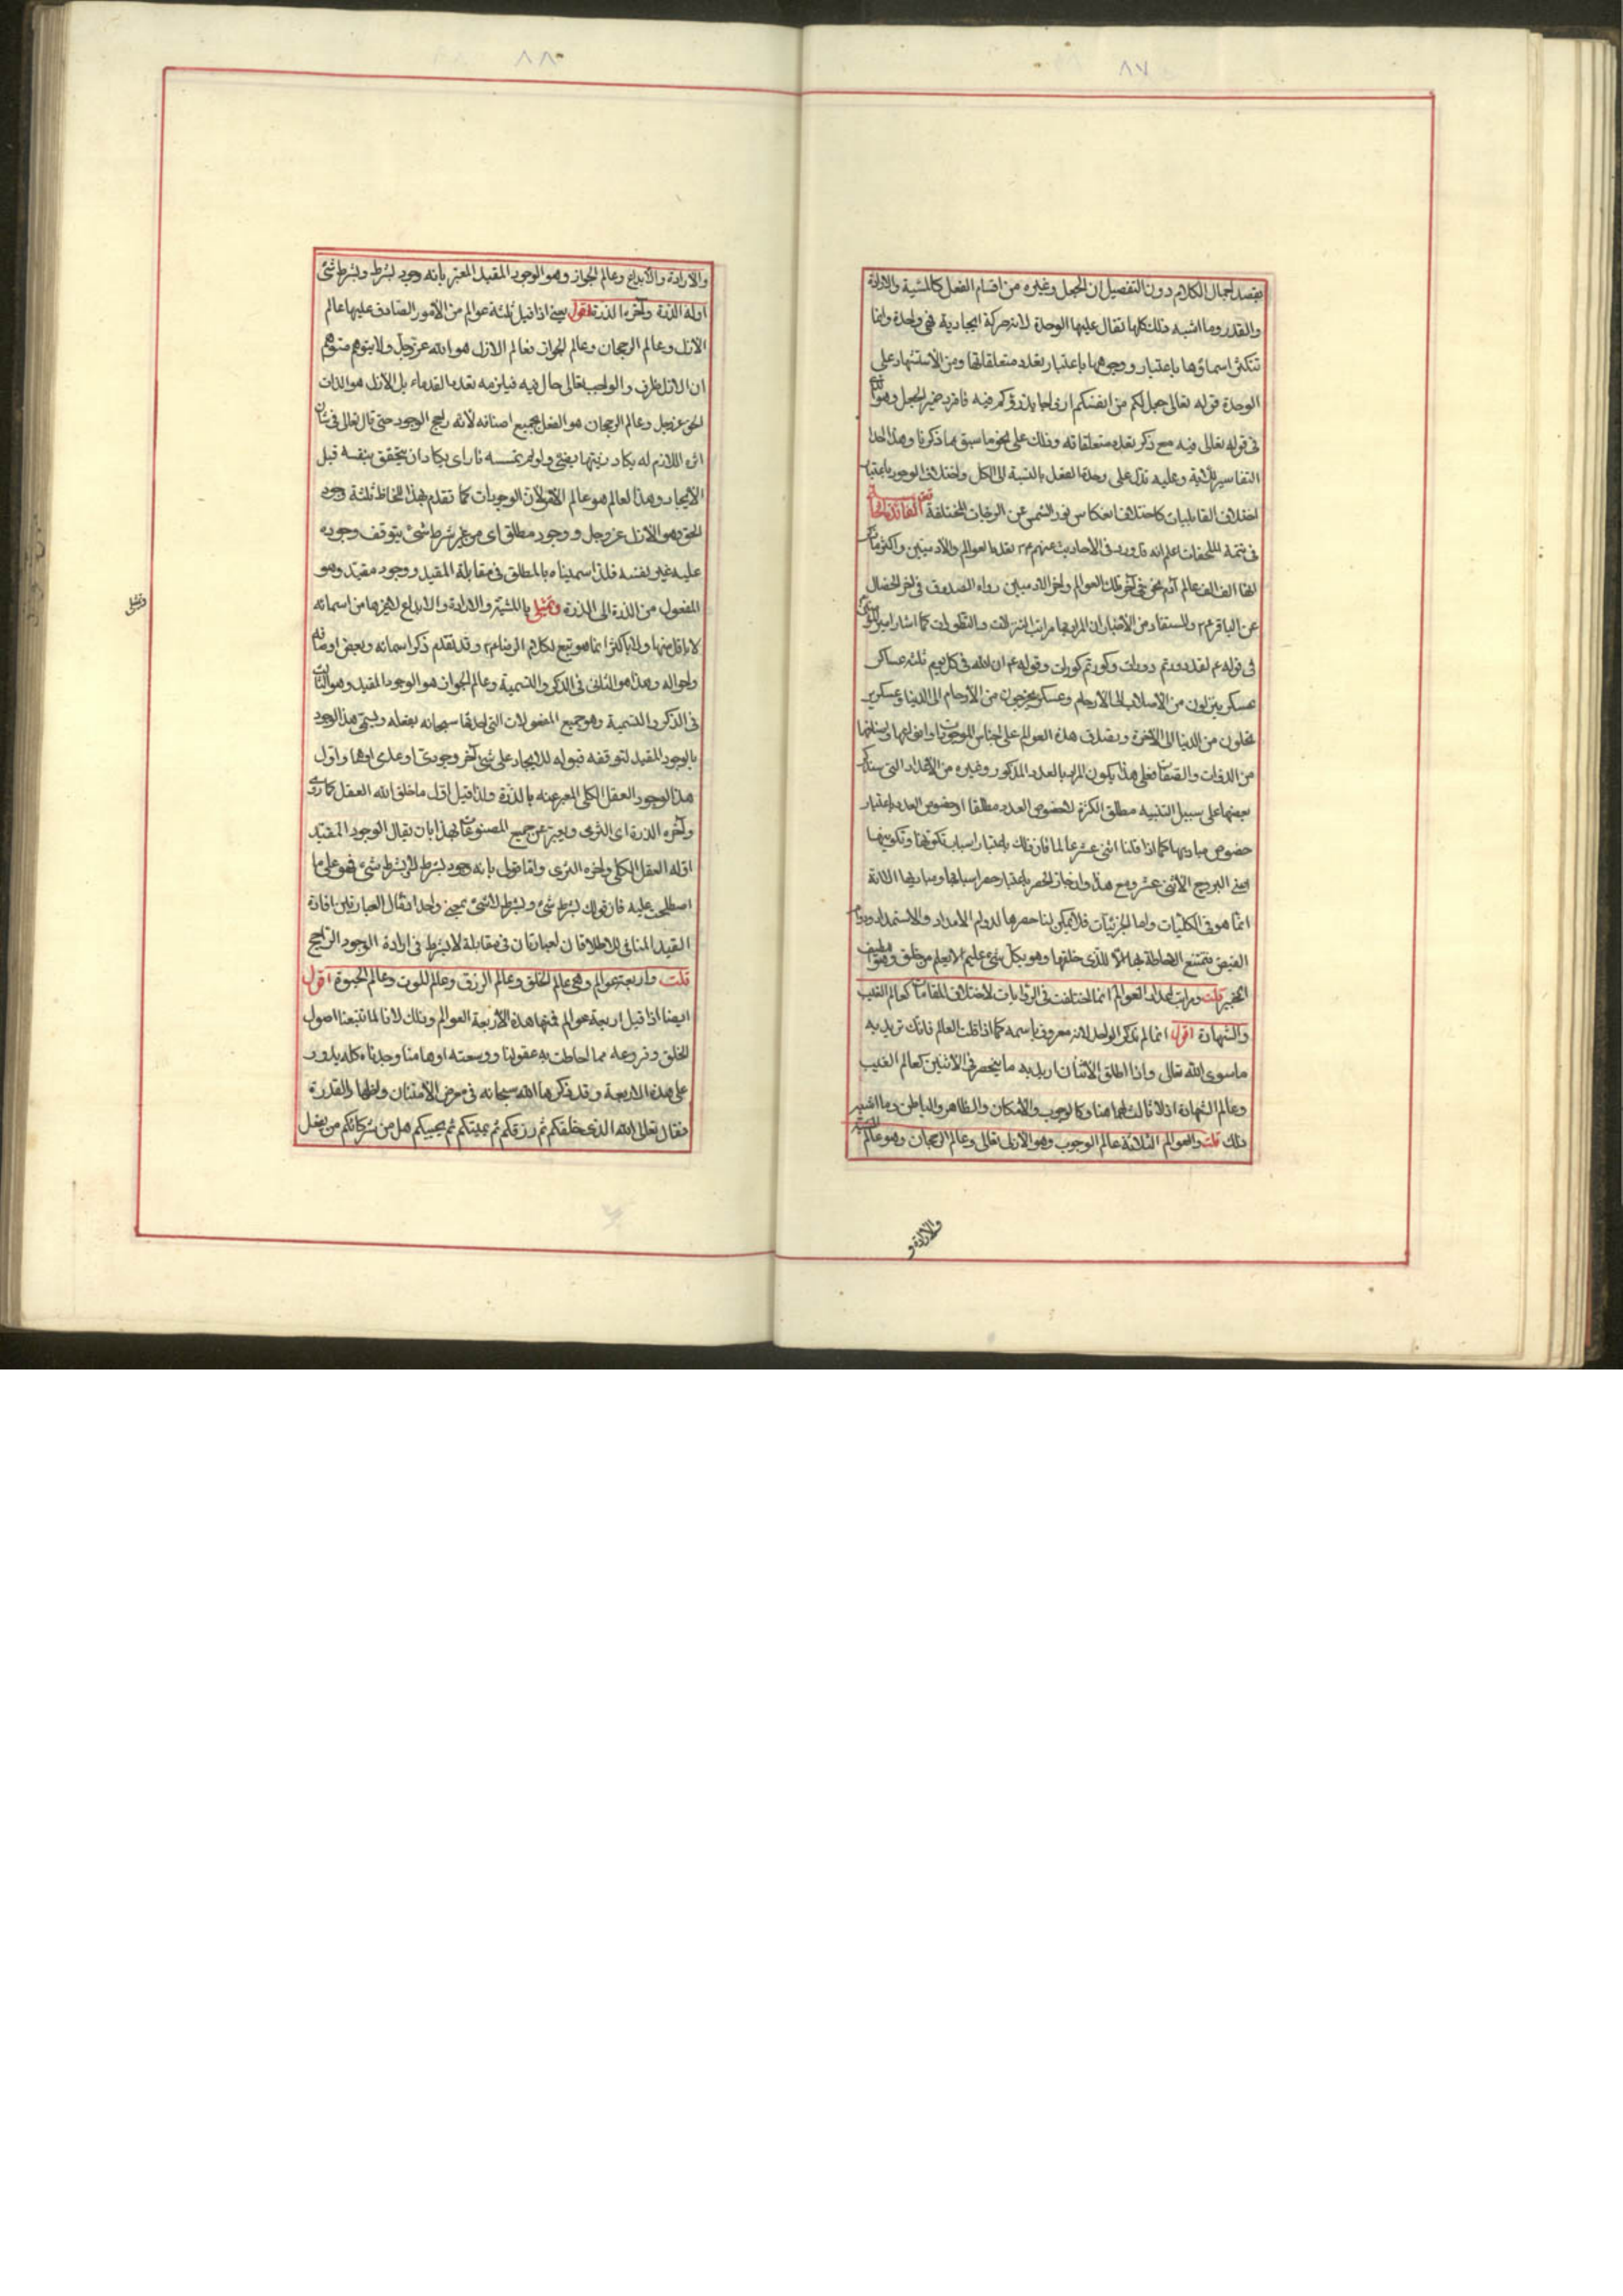 ٨٧
بقصد اجمال الكلام دون التفصيل ان الجعل وغيره من اقسام الفعل كالمشية والارادة
والقدر وما اشبه ذلك كلها تقال عليها الوحدة لانه حركة ايجادية فهى واحدة وانما
تتكثر اسماؤها باعتبار وجوهها باعتبار تعدد متعلقاتها ومن الاستشهاد على
الوحدة قوله تعالى جعل لكم من انفسكم ازواجا يذرؤكم فيه فافرد ضمير الجعل وهو
فى قوله تعالى فيه مع ذكر تعدد متعلقاته وذلك على نحو ما سبق مما ذكرنا وهذا احد
التفاسير للآية وعليه تدل على وحدة الفعل بالنسبة الى الكل واختلاف الوجود باعتبار
اختلاف القابليات كاختلاف انعكاس نور الشمس عن الزجاجات المختلفة الفائدة
فى تتمة الملحقات اعلم انه قد ورد فى الاحاديث عنهم ع تعدد العوالم والآدميين واكثر ما
الف الف عالم آدم نحن فى آخر تلك العوالم وآخر الآدميين رواه الصدوق فى آخر الخصال
عن الباقر ع والمستفاد من الاخبار ان المراد بها مراتب التنزلات والتطورات كما اشار امير
فى قوله ع لقد دورتم دورات وكورتم كورات وقوله ع ان لله فى كل يوم ثلثة عساكر
عسكر ينزلون من الاصلاب الى الارحام وعسكر يخرجون من الارحام الى الدنيا وعسكر
يرحلون من الدنيا الى الاخرة ويصدق هذه العوالم على اجناس الموجودات وانواعها
من الذوات والصفات فعلى هذا يكون المراد بالعدد المذكور وغيره من الاعداد التى سنذكر
بعضها على سبيل التنبيه مطلق الكثرة لا خصوص العدد مطلقا او خصوص العدد باعتبار
خصوص مباديها كما اذا قلنا اثنى عشر عالما فان ذلك باعتبار اسباب تكونها وتكوينها
اعنى البروج الاثنى عشر ومع هذا وان جاز الحصر باعتبار حصر اسبابها ومباديها
انما هو فى الكليات واما الجزئيات فلا يمكن لنا حصرها لدوام الامداد والاستمداد
الفيض يمتنع الاحاطة بها الا للذى خلقها وهو بكل شئ عليم الا يعلم من خلق وهو اللطيف
الخبير قلت ومراتب اعداد العوالم انما اختلفت فى الروايات لاختلاف المقامات كعالم الغيب
والشهادة اقول انما لم نذكر الواحد لانه معروف باسمه كما اذا قلت العالم فانك تريد به
ما سوى الله تعالى واذا اطلق الاثنان اريد به ما ينحصر فى الاثنين كعالم الغيب
وعالم الشهادة اذ لا ثالث لهما هنا وكالوجوب والامكان والظاهر والباطن وما اشبه
ذلك قلت والعوالم الثلاثة عالم الوجوب وهو الازل تعالى وعالم الرجحان وهو عالم
والارادة و
٨٨
والارادة والابداع وعالم الجواز وهو الوجود المقيد المعبر بانه وجود بشرط وبشرط شئ
اوله الذرة وآخره الذرة اقول يعنى اذا قيل ثلثة عوالم من الامور الصادق عليها عالم
الازل وعالم الرجحان وعالم الجواز فعالم الازل هو الله عز وجل ولا يتوهم متوهم
ان الازل ظرف والواجب تعالى حال فيه فيلزمه تعدد القدماء بل الازل هو الذات
الحق عز وجل وعالم الرجحان هو الفعل بجميع اصنافه لانه راجح الوجود حتى قال تعالى فى شان
اثره اللازم له يكاد زيتها يضئ ولو لم تمسسه نار اى يكاد ان يتحقق بنفسه قبل
الايجاد وهذا العالم هو عالم الامر لان الوجودات كما تقدم بهذا اللحاظ ثلثة وجود
الحق وهو الازل عز وجل ووجود مطلق اى من غير شرط شئ يتوقف وجوده
عليه غير نفسه فلذا سميناه بالمطلق فى مقابلة المقيد ووجود مقيد وهو
المفعول من الذرة الى الذرة وتمثيلى بالمشية والارادة والابداع لا غيرها من اسمائه
لا باقل منها ولا باكثر انما هو تبع لكلام الرضا ع وقد تقدم ذكر اسمائه وبعض اوصافه
واحواله وهذا هو الثانى فى الذكر والتسمية وعالم الجواز هو الوجود المقيد وهو الثالث
فى الذكر والتسمية وهو جميع المفعولات التى احدثها سبحانه بفعله ويسمى هذا الوجود
بالوجود المقيد لتوقفه قبوله للايجاد على شئ آخر وجودى او عدمى او هما واول
هذا الوجود العقل الكلى المعبر عنه بالذرة ولذا قيل اول ما خلق الله العقل كما روى
وآخره الذرة اى الثرى ويعبر عن جميع المصنوعات بهذا بان يقال الوجود المقيد
اوله العقل الكلى وآخره الثرى واما قولى بانه وجود بشرط لا وبشرط شئ فهو على ما
اصطلحت عليه فان قولك بشرط شئ وبشرط لا شئ بمعنى واحد فقال العبارتين افادة
القيد المنافى للاطلاق ان العبارتان فى مقابلة لا بشرط فى ارادة الوجود الراجح
قلت واربعة عوالم وهى عالم الخلق وعالم الرزق وعالم الموت وعالم الحيوة اقول
ايضا اذا قيل اربعة عوالم فمنها هذه الاربعة العوالم وذلك لانا لما تتبعنا اصول
الخلق وفروعه مما احاطت به عقولنا ووسعته اوهامنا وجدناه كله يدور
على هذه الاربعة وقد ذكرها الله سبحانه فى معرض الامتنان واظهار القدرة
فقال تعالى الله الذى خلقكم ثم رزقكم ثم يميتكم ثم يحييكم هل من شركائكم من يفعل
وتمثيلى